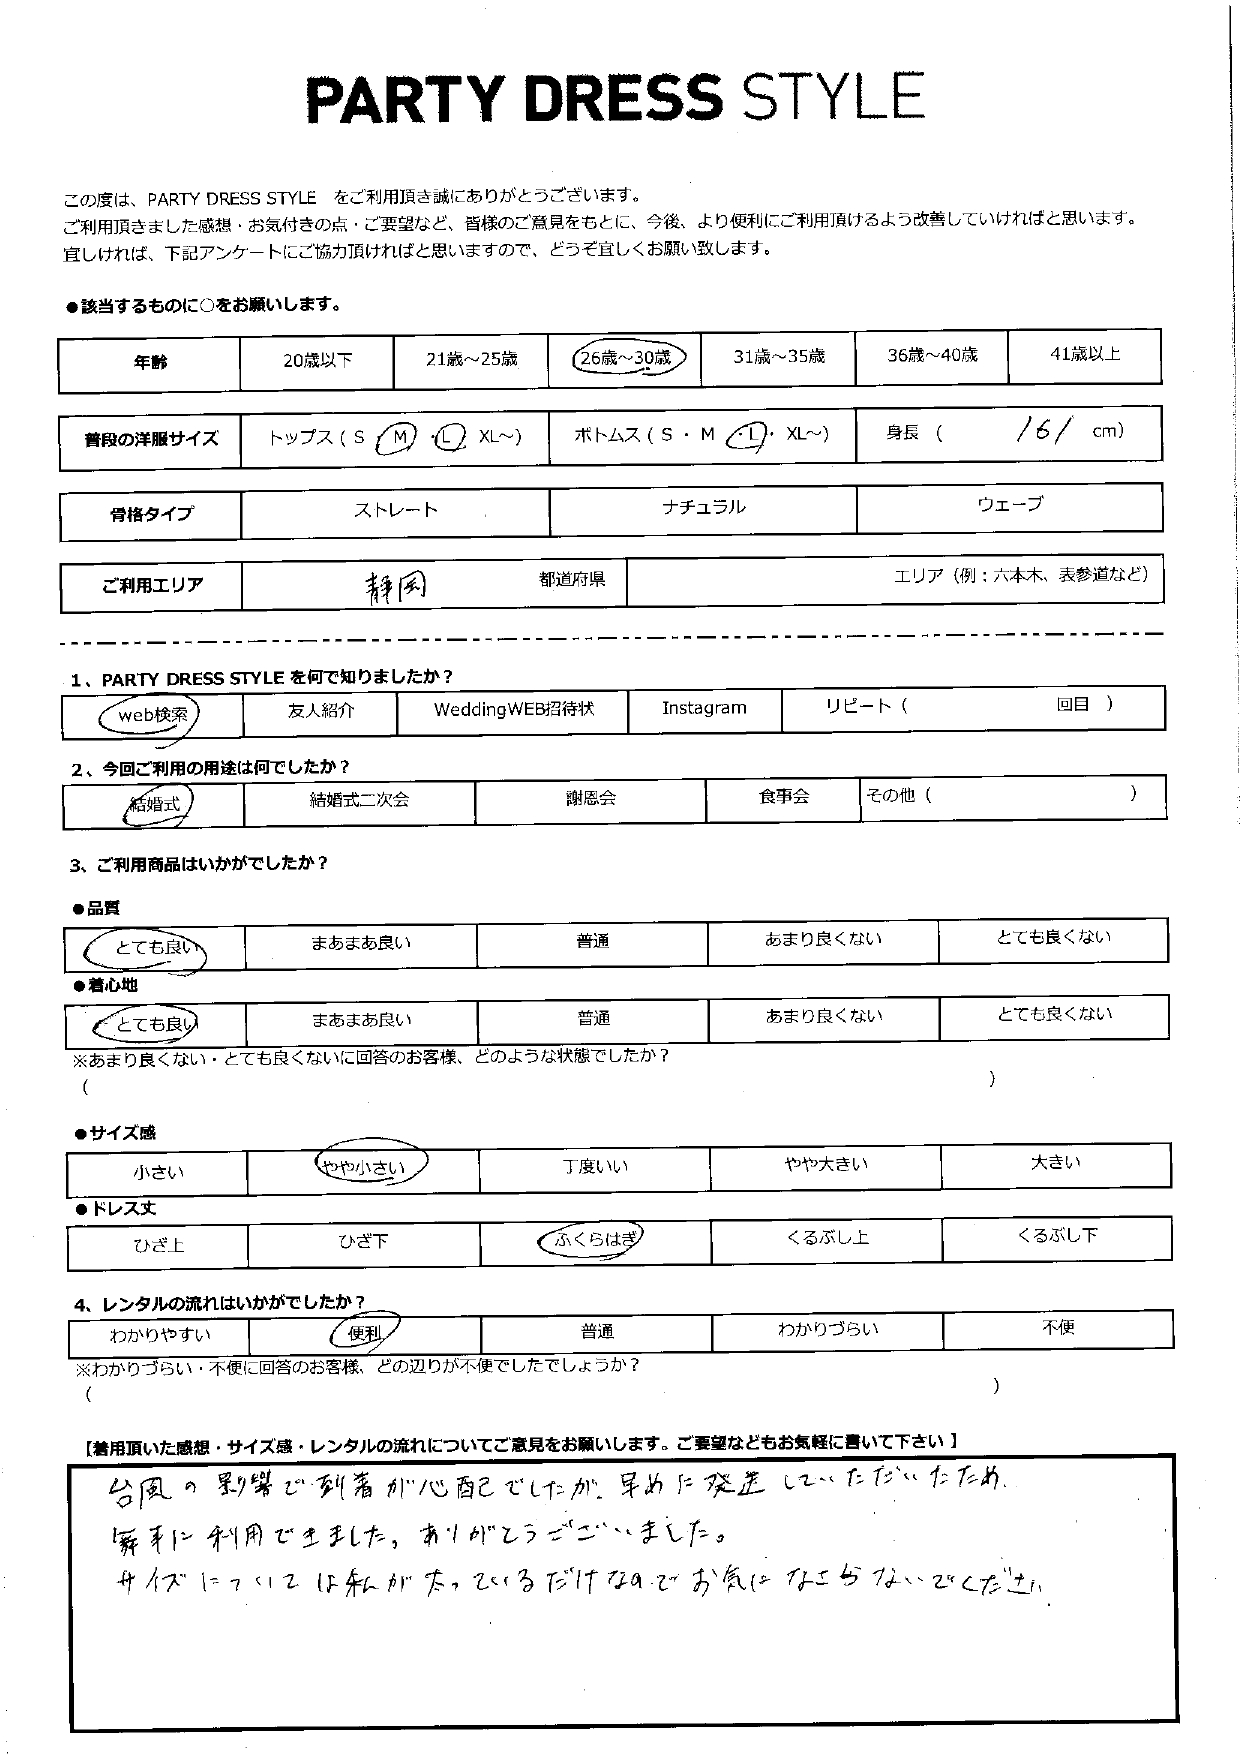 PARTY DRESS STYLE
この度は、PARTY DRESS STYLE　をご利用頂き誠にありがとうございます。
ご利用頂きました感想・お気付きの点・ご要望など、皆様のご意見をもとに、今後、より便利にご利用頂けるよう改善していければと思います。
宜しければ、下記アンケートにご協力頂ければと思いますので、どうぞ宜しくお願い致します。
●該当するものに○をお願いします。
年齢 20歳以下 21歳～25歳 26歳～30歳 31歳～35歳 36歳～40歳 41歳以上
普段の洋服サイズ トップス ( S ・ M ・ L ・ XL～) ボトムス ( S ・ M ・ L ・ XL～) 身長 ( 161 cm)
骨格タイプ ストレート ナチュラル ウェーブ
ご利用エリア 静岡 都道府県 エリア（例：六本木、表参道など）
1、PARTY DRESS STYLE を何で知りましたか？
web検索 友人紹介 WeddingWEB招待状 Instagram リピート ( 回目 )
2、今回ご利用の用途は何でしたか？
結婚式 結婚式二次会 謝恩会 食事会 その他 ( )
3、ご利用商品はいかがでしたか？
●品質
とても良い まあまあ良い 普通 あまり良くない とても良くない
●着心地
とても良い まあまあ良い 普通 あまり良くない とても良くない
※あまり良くない・とても良くないに回答のお客様、どのような状態でしたか？
( )
●サイズ感
小さい やや小さい 丁度いい やや大きい 大きい
●ドレス丈
ひざ上 ひざ下 ふくらはぎ くるぶし上 くるぶし下
4、レンタルの流れはいかがでしたか？
わかりやすい 便利 普通 わかりづらい 不便
※わかりづらい・不便に回答のお客様、どの辺りが不便でしたでしょうか？
( )
【着用頂いた感想・サイズ感・レンタルの流れについてご意見をお願いします。ご要望などもお気軽に書いて下さい】
台風の影響で到着が心配でしたが、早めに発送していただいたため、
無事に利用できました。ありがとうございました。
サイズについては私が太っているだけなのでお気になさらないでください。